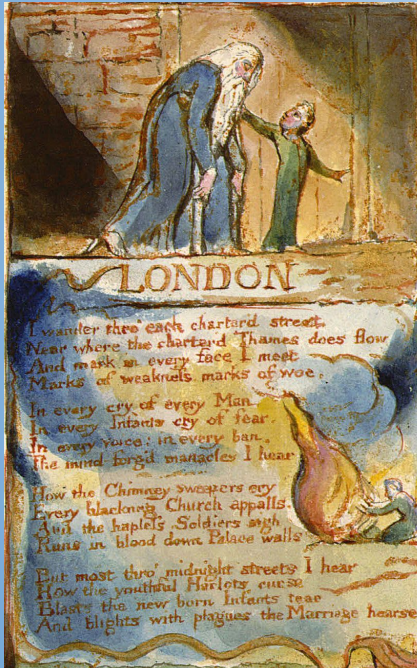 LONDON
I wander thro' each charterd street,
Near where the charterd Thames does flow
And mark in every face I meet
Marks of weakness, marks of woe.
In every cry of every Man,
In every Infants cry of fear,
In every voice; in every ban,
The mind-forg'd manacles I hear
How the Chimney sweepers cry
Every blackning Church appalls,
And the hapless Soldiers sigh
Runs in blood down Palace walls
But most thro' midnight streets I hear
How the youthful Harlots curse
Blasts the new born Infants tear
And blights with plagues the Marriage hearse